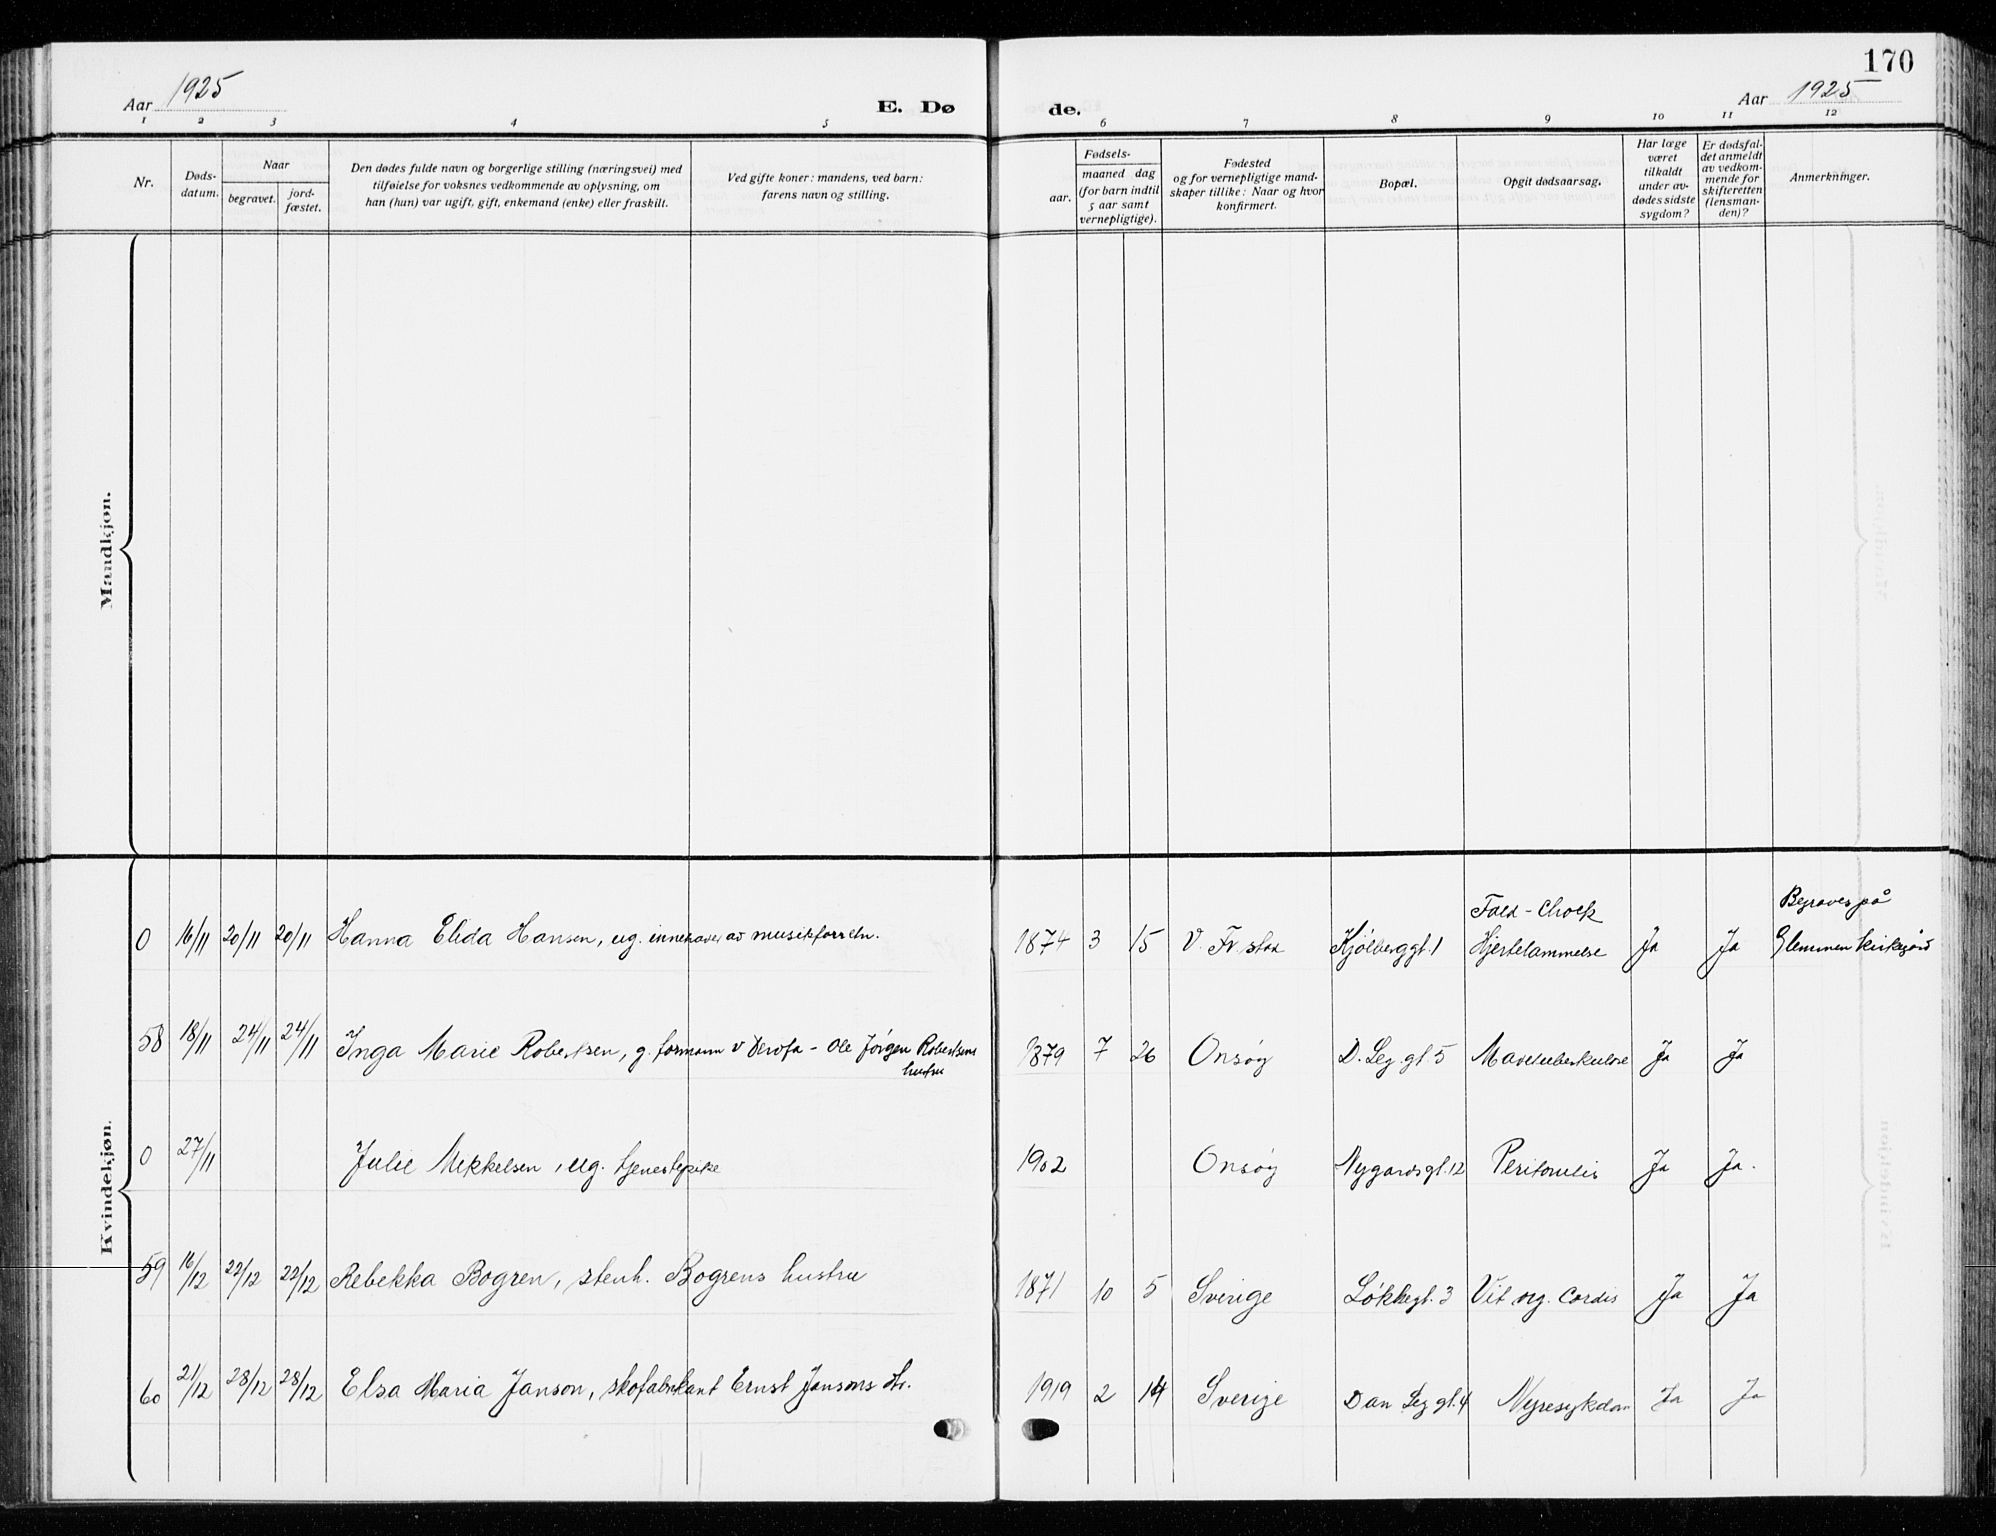 170
Aar 1925
E. Dø
de.
Aar 1925
1 2 3 4 5 6 7 8 9 10 11 12
Nr.
Døds-
datum.
Naar
begravet.
jord-
fæstet.
Den dødes fulde navn og borgerlige stilling (næringsvei) med
tilføielse for voksnes vedkommende av oplysning, om
han (hun) var ugift, gift, enkemand (enke) eller fraskilt.
Ved gifte koner: mandens, ved barn:
farens navn og stilling.
aar.
Fødsels-
maaned dag
(for barn indtil
5 aar samt
vernepligtige).
Fødested
og for vernepligtige mand-
skaper tillike: Naar og hvor
konfirmert.
Bopæl.
Opgit dødsaarsag.
Har læge
været
tilkaldt
under av-
dødes sidste
sygdom?
Er dødsfal-
det anmeldt
av vedkom-
mende for
skifteretten
(lensman-
den)?
Anmerkninger.
Mandkjøn.
Kvindekjøn.
Fald-Chock
Begraves på
0 16/11 20/11 20/11 Hanna Elida Hansen, ug. innehaver av musikforretn. 1874 3 15 V. Fr.stad Kjølberggt. 1 Hjertelammelse Ja Ja Glemmen kirkegård
58 18/11 24/11 24/11 Inga Marie Robertsen, g. formann v Denofa - Ole Jørgen Robertsens 1879 7 26 Onsøy D. Leg. gt. 5 Mavetuberkulose Ja Ja
hustru
0 27/11 Julie Mikkelsen, ug. tjenestepike 1902 Onsøy Nygaardsgt. 12 Peritonitis Ja Ja.
59 16/12 22/12 22/12 Rebekka Bogren, stenh. Bogrens hustru 1871 10 5 Sverige Løkkegt. 3 Vit. org. Cordis Ja Ja
60 21/12 28/12 28/12 Elsa Maria Janson, skofabrikant Ernst Jansons dtr. 1919 2 14 Sverige Dan Leg gt. 4 Nyresykdom Ja Ja